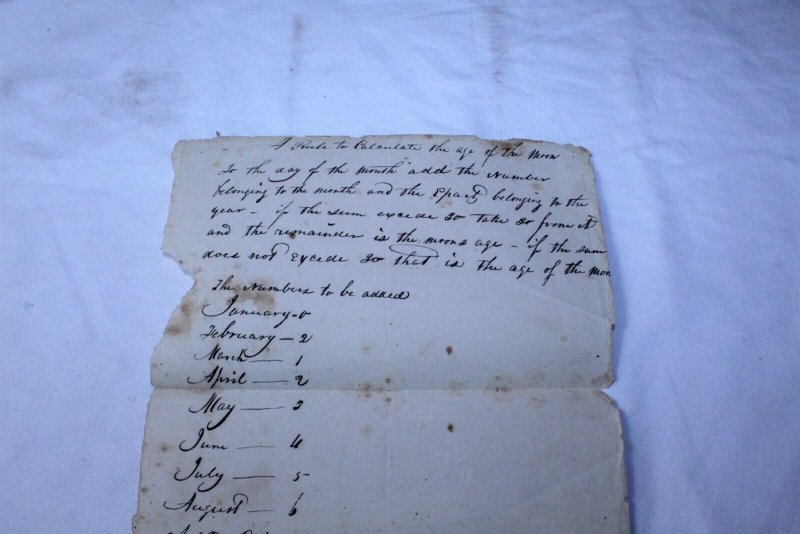 A Rule to Calculate the age of the Moon
To the day of the Month add the Number
belonging to the month and the Epact belonging to the
year - if the sum excede 30 take 30 from it
and the remainder is the moons age - if the sum
does not Excede 30 that is the age of the moon
The Numbers to be added
January - 0
February - 2
March - 1
April - 2
May - 3
June - 4
July - 5
August - 6